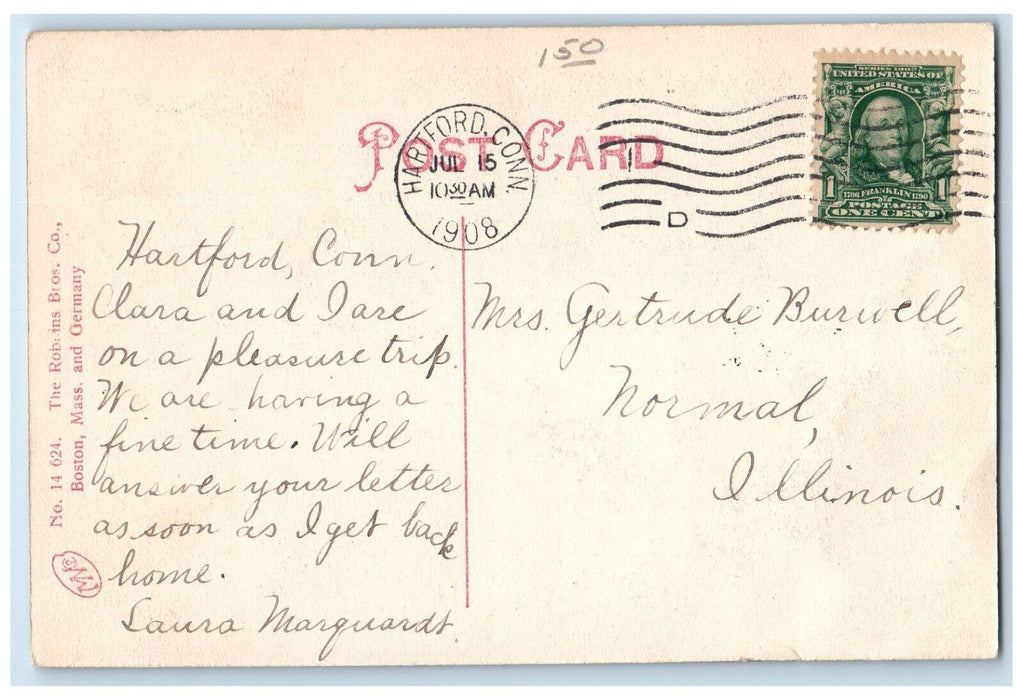 150
POST CARD
HARTFORD, CONN.
JUL 15
10 30 AM
1908
D
SERIES 1902
UNITED STATES OF
AMERICA
1706 FRANKLIN 1790
POSTAGE
1 ONE CENT 1
No. 14 624. The Robbins Bros. Co.,
Boston, Mass. and Germany
Hartford, Conn.
Clara and I are
on a pleasure trip.
We are having a
fine time. Will
answer your letter
as soon as I get back
home.
Laura Marquardt.
Mrs. Gertrude Burwell,
Normal,
Illinois.